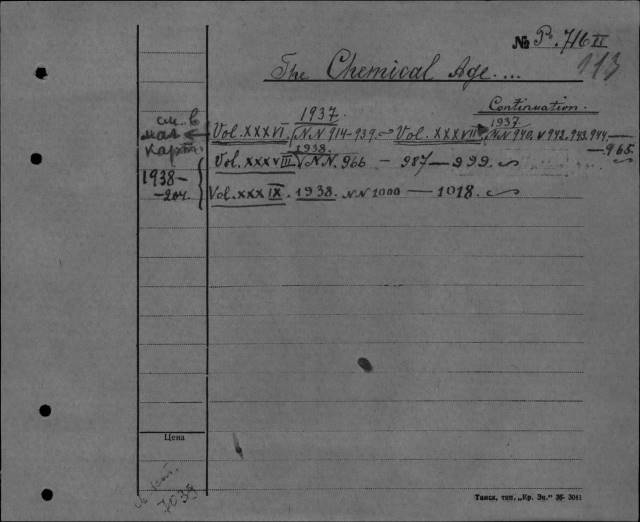 № P. 716 II
113
The Chemical Age....
Continuation.
см. в мал. карт.
1937.
Vol. XXXVI. NN 914-939. — Vol. XXXVII 1937. NN 940. 942. 943. 944. — 965
1938.
Vol. XXXVIII NN. 966 — 987 — 999.
1938 — 2оч.
Vol. XXXIX. 1938. NN 1000 — 1018.
Цена
7039
Тамск. тип. „Кр. Зн." 36- 3041